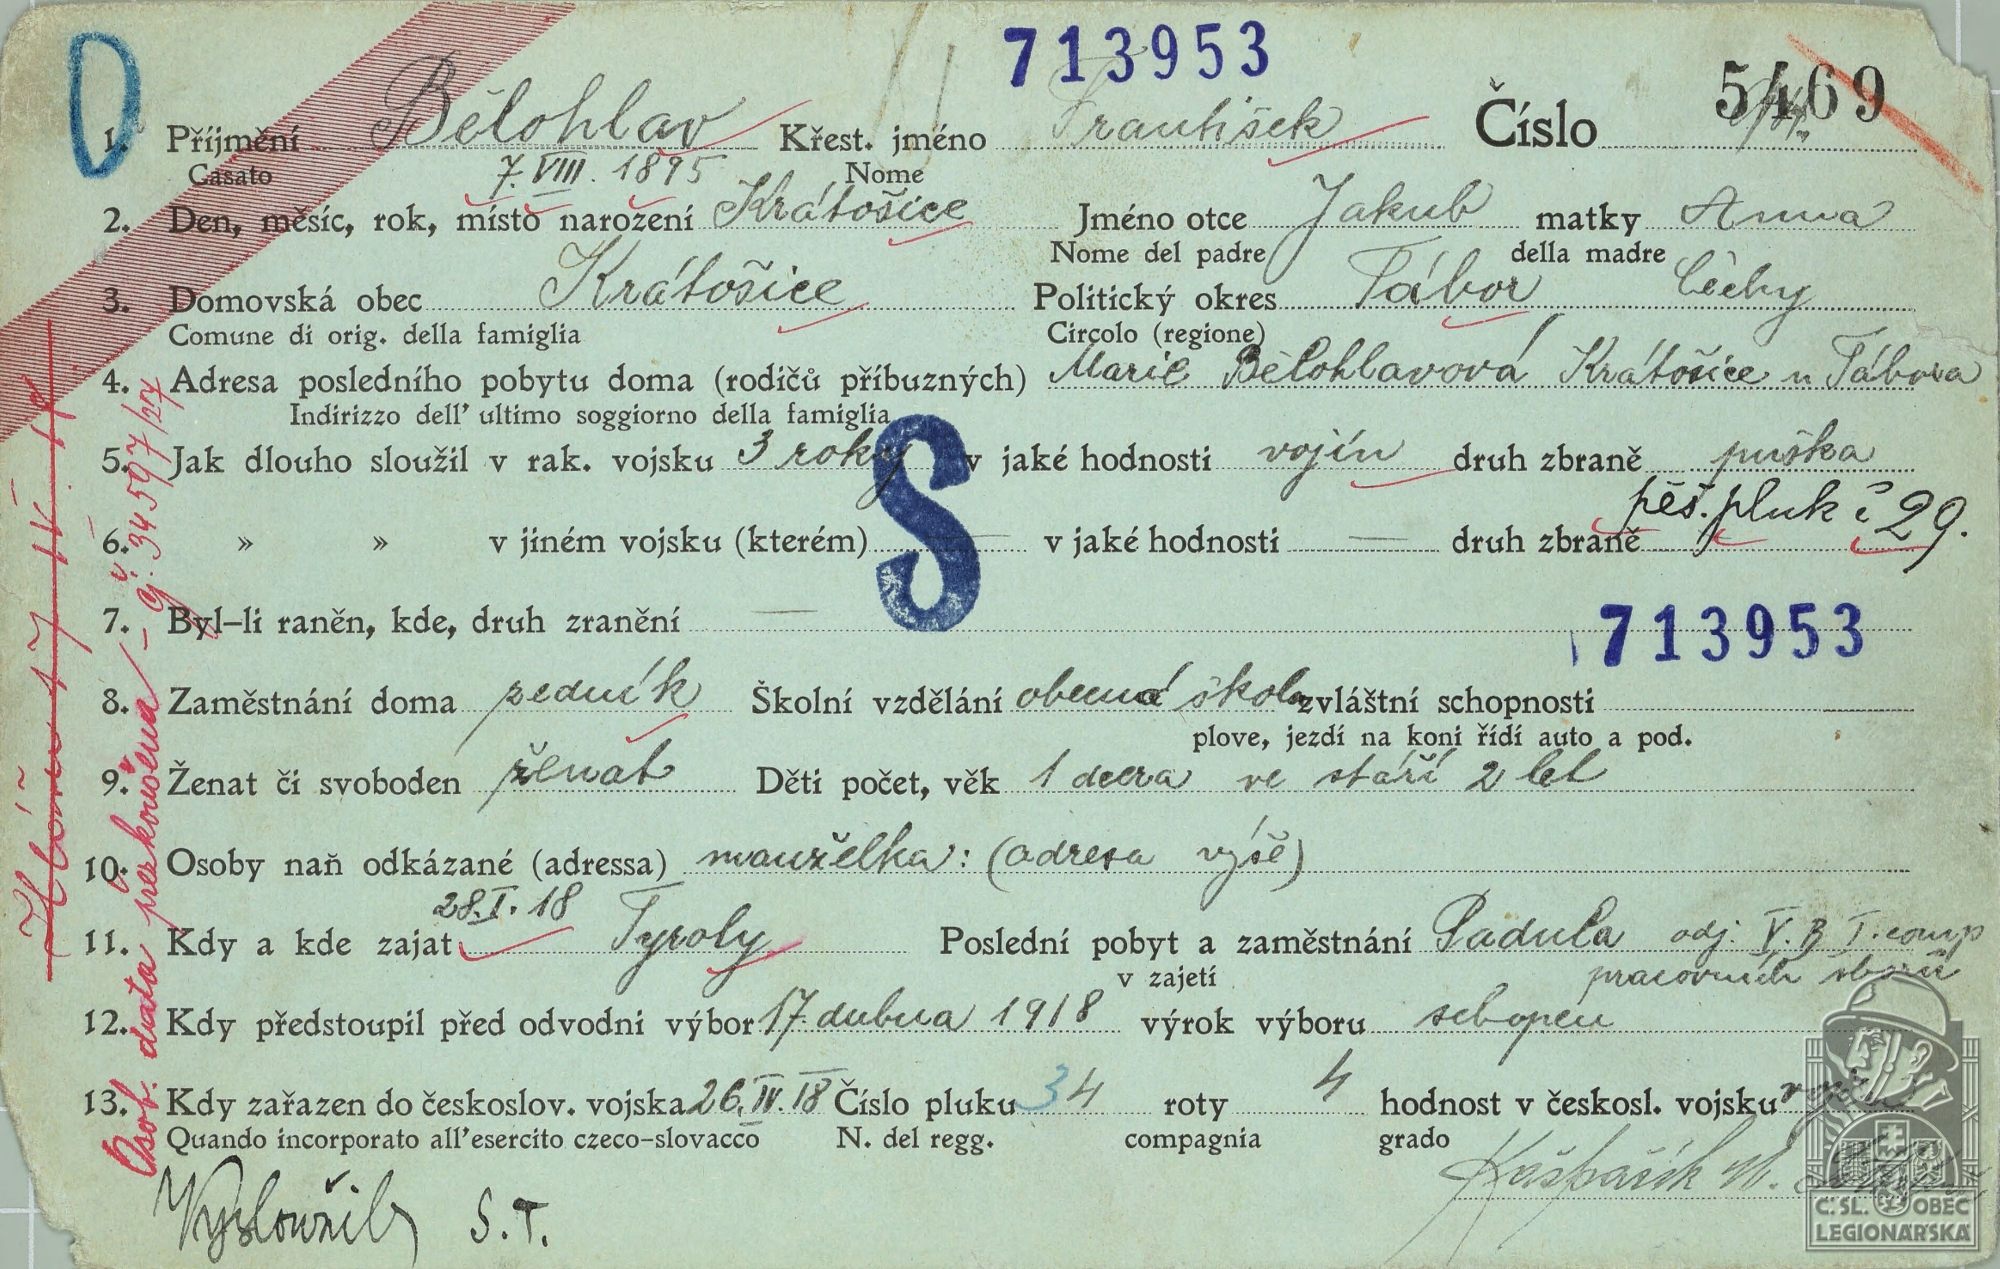 713953
5469
1. Příjmení Bělohlav Křest. jméno František Číslo
Casato Nome
7. VIII. 1895
2. Den, měsíc, rok, místo narození Krátošice Jméno otce Jakub matky Anna
Nome del padre della madre
3. Domovská obec Krátošice Politický okres Tábor Čechy
Comune di orig. della famiglia Circolo (regione)
4. Adresa posledního pobytu doma (rodičů příbuzných) Marie Bělohlavová Krátošice u Tábora
Indirizzo dell' ultimo soggiorno della famiglia
5. Jak dlouho sloužil v rak. vojsku 3 roky v jaké hodnosti vojín druh zbraně puška
S
pěš. pluk č 29.
6. » » v jiném vojsku (kterém) — v jaké hodnosti — druh zbraně
7. Byl-li raněn, kde, druh zranění —
713953
8. Zaměstnání doma zedník Školní vzdělání obecná škola zvláštní schopnosti —
plove, jezdí na koni řídí auto a pod.
9. Ženat či svoboden ženat Děti počet, věk 1 dcera ve stáří 2 let
10. Osoby naň odkázané (adressa) manželka: (adresa výše)
28. I. 18
11. Kdy a kde zajat Tyroly Poslední pobyt a zaměstnání Padula odj. V. B I. comp
v zajetí pracovních sborů
12. Kdy předstoupil před odvodni výbor 17. dubna 1918 výrok výboru schopen
13. Kdy zařazen do českoslov. vojska 26. IV. 18 Číslo pluku 34 roty 4 hodnost v českosl. vojsku vojín
Quando incorporato all'esercito czeco-slovacco N. del regg. compagnia grado
Vysloužil S. T.
Kašpařík
Osob. data přezkoušena – čj. 34597/27
Č.SL. OBEC
LEGIONÁŘSKÁ